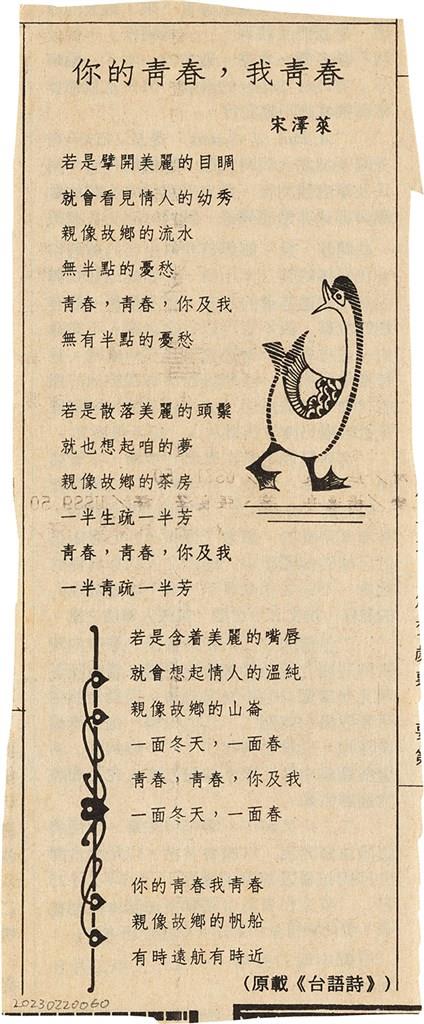 你的青春，我青春
宋澤萊
若是擘開美麗的目睭
就會看見情人的幼秀
親像故鄉的流水
無半點的憂愁
青春，青春，你及我
無有半點的憂愁
若是散落美麗的頭鬃
就也想起咱的夢
親像故鄉的茶房
一半生疏一半芳
青春，青春，你及我
一半青疏一半芳
若是含着美麗的嘴唇
就會想起情人的溫純
親像故鄉的山崙
一面冬天，一面春
青春，青春，你及我
一面冬天，一面春
你的青春我青春
親像故鄉的帆船
有時遠航有時近
（原載《台語詩》）
20230220060